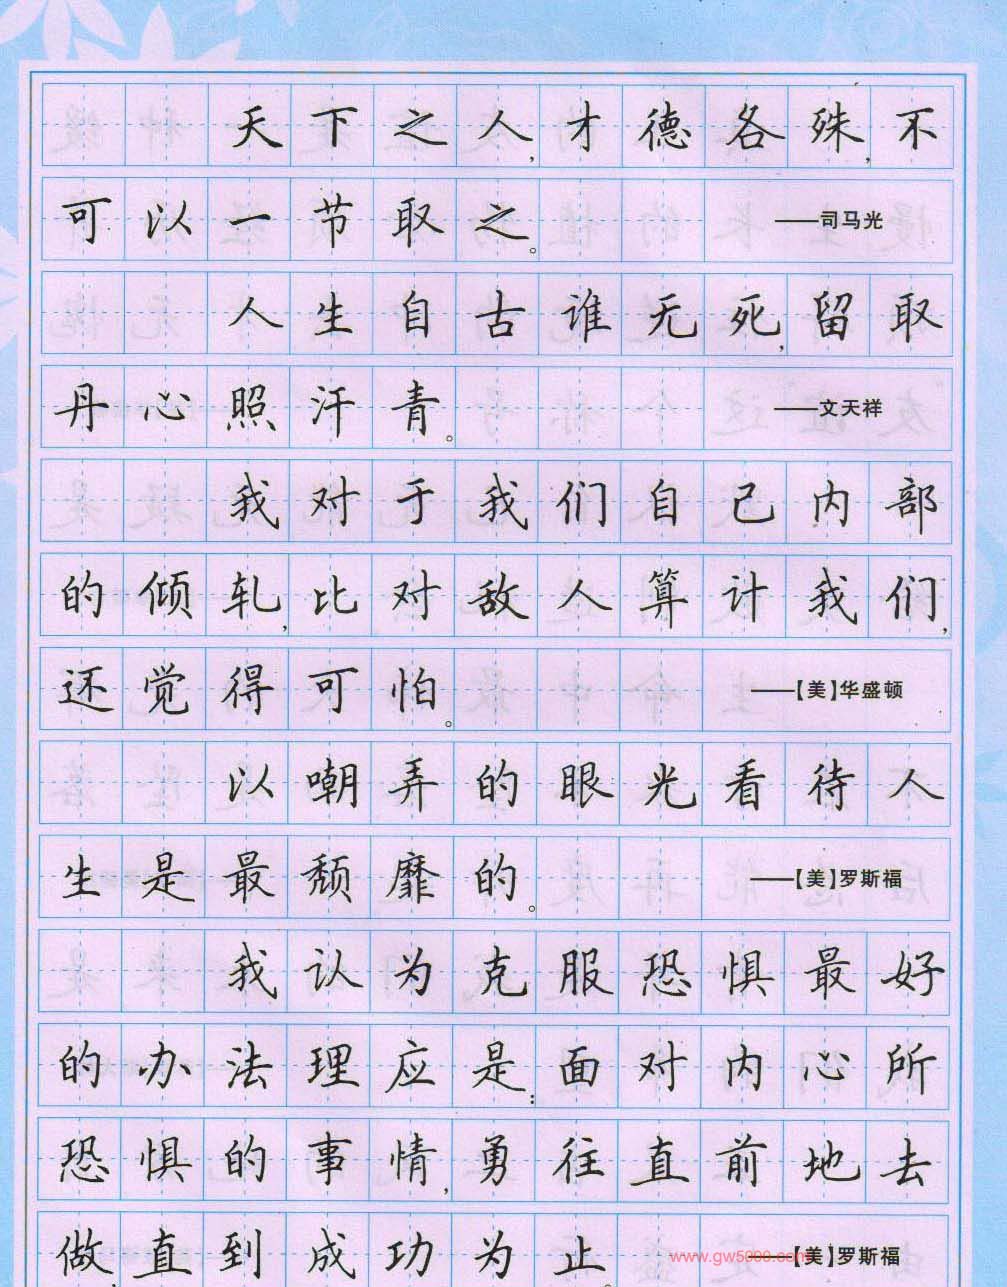 天下之人,才德各殊,不
可以一节取之。 ——司马光
人生自古谁无死,留取
丹心照汗青。 ——文天祥
我对于我们自己内部
的倾轧,比对敌人算计我们,
还觉得可怕。 ——【美】华盛顿
以嘲弄的眼光看待人
生是最颓靡的。 ——【美】罗斯福
我认为克服恐惧最好
的办法理应是:面对内心所
恐惧的事情,勇往直前地去
做,直到成功为止。 ——【美】罗斯福
www.gw5000.com